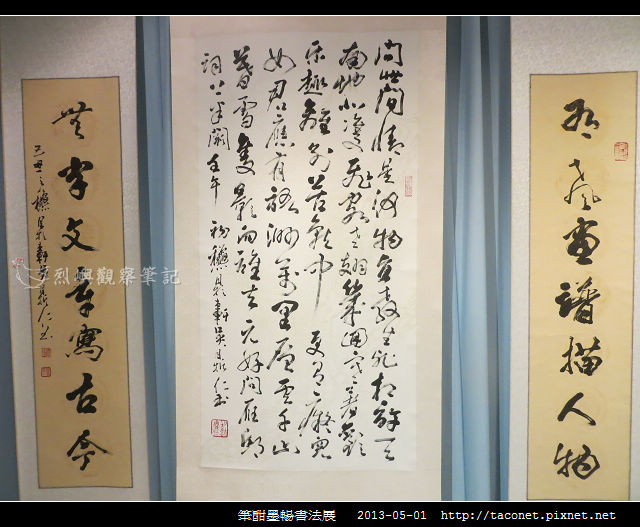 有聲畫譜描人物
問世間情是何物直教生死相許天
南地北雙飛客老翅幾回寒暑歡
樂趣離別苦就中更有癡兒
女君應有語渺萬里層雲千山
暮雪隻影向誰去元好問雁邱
詞上半闋 壬午
無字文章寫古今
己丑之
烈嶼觀察筆記
筆酣墨暢書法展 2013-05-01 http://taconet.pixnet.net